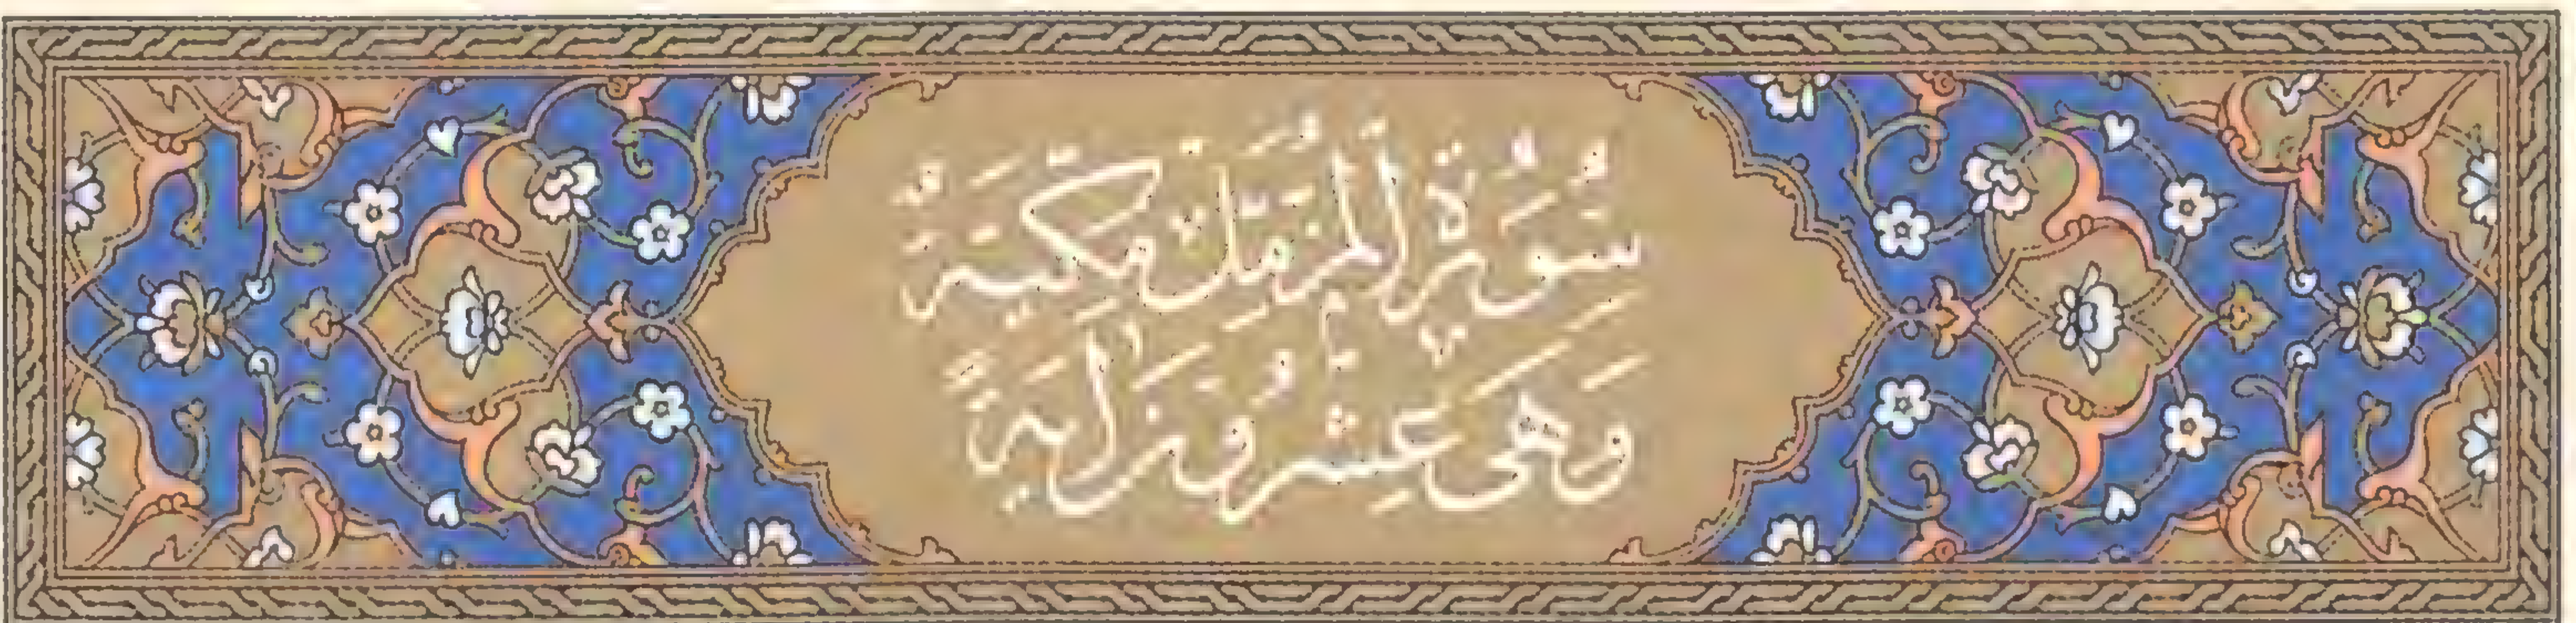 سُورَةُ الْمُزَّمِّلِ مَكِّيَّةٌ
وَهِىَ عِشْرُونَ اٰيَةً